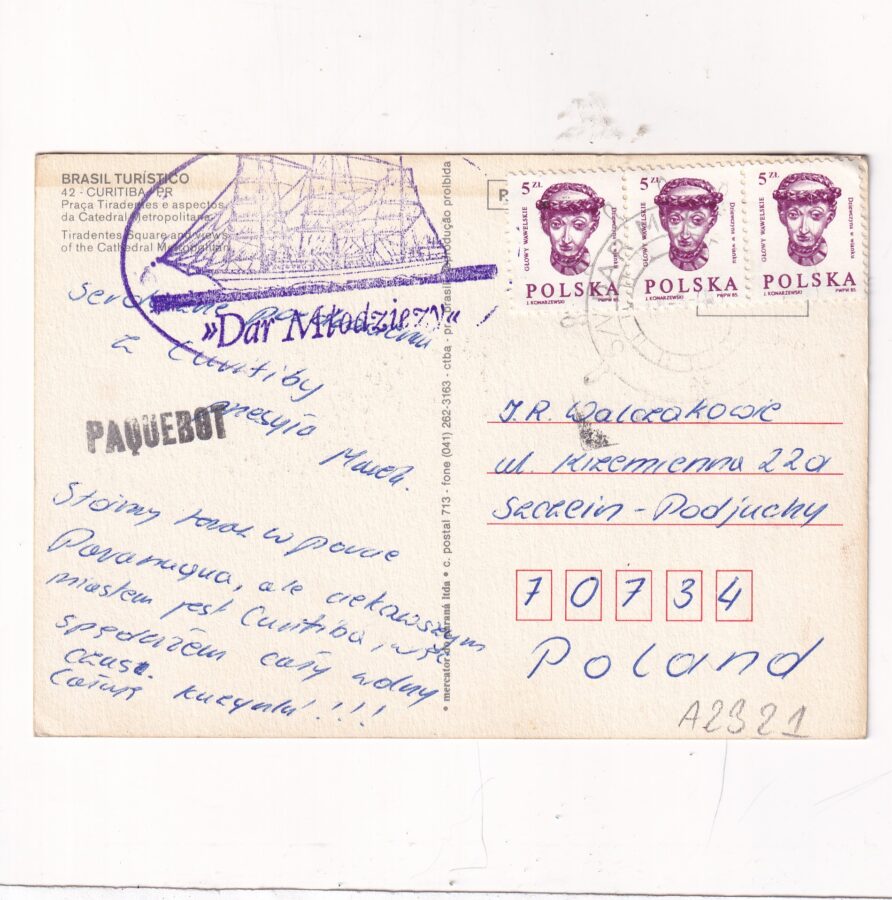 BRASIL TURÍSTICO
42 - CURITIBA - PR
Praça Tiradentes e aspectos
da Catedral Metropolitana
Tiradentes Square and views
of the Cathedral Metropolitan
»Dar Młodzieży«
z Curitiby
przesyła
Marek.
PAQUEBOT
Stoimy teraz w porcie
Paranagua, ale ciekawszym
miastem jest Curitiba, w
spędziłem cały wolny
czas.
Całuję kuzynki!!!
mercator do paraná ltda • c. postal 713 - fone (041) 262-3163 - ctba - pr - brasil reprodução proibida
5 ZŁ
GŁOWY WAWELSKIE
Dziewczyna w wianku
POLSKA
J. KONARZEWSKI PWPW 85
5 ZŁ
GŁOWY WAWELSKIE
Dziewczyna w wianku
POLSKA
J. KONARZEWSKI PWPW 85
5 ZŁ
GŁOWY WAWELSKIE
Dziewczyna w wianku
POLSKA
J. KONARZEWSKI PWPW 85
J.R. Walczakowie
ul. Krzemienna 22a
Szczecin - Podjuchy
70734
Poland
A2321